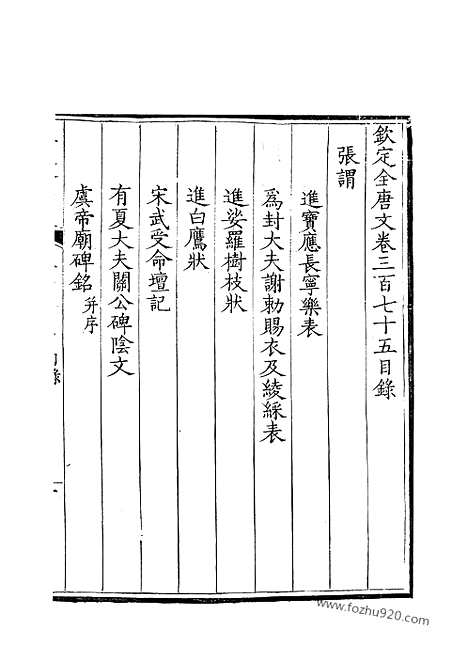 欽定全唐文卷三百七十五目錄
張謂
進寶應長寧樂表
為封大夫謝勅賜衣及綾綵表
進娑羅樹枝狀
進白鷹狀
宋武受命壇記
有夏大夫關公碑陰文
虞帝廟碑銘并序
www.fozhu920.com